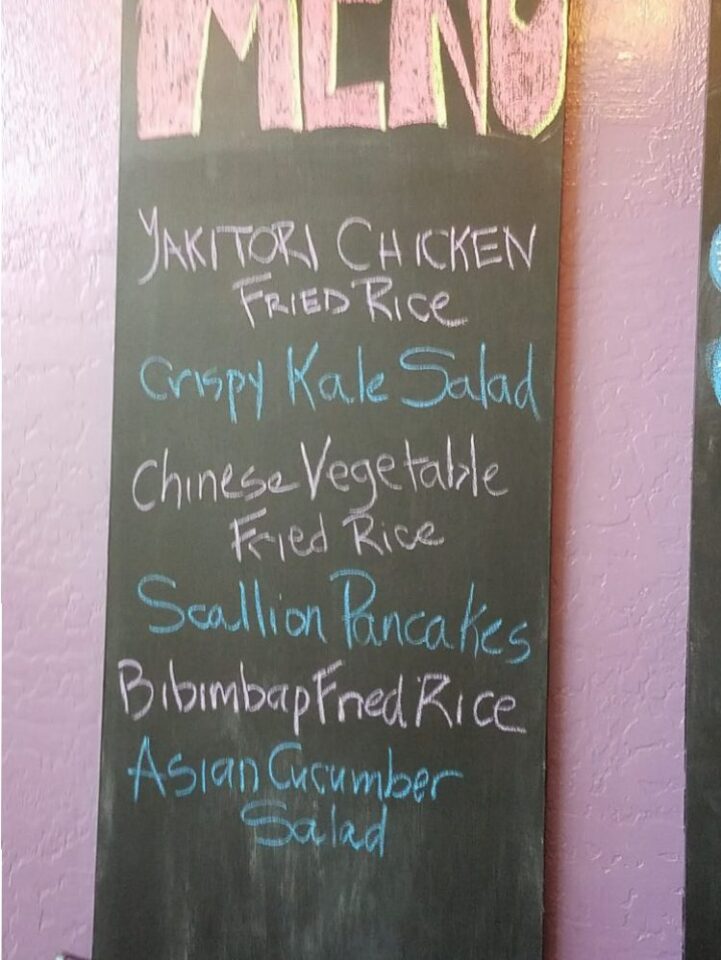 MENU
YAKITORI CHICKEN
FRIED RICE
Crispy Kale Salad
Chinese Vegetable
Fried Rice
Scallion Pancakes
Bibimbap Fried Rice
Asian Cucumber
Salad